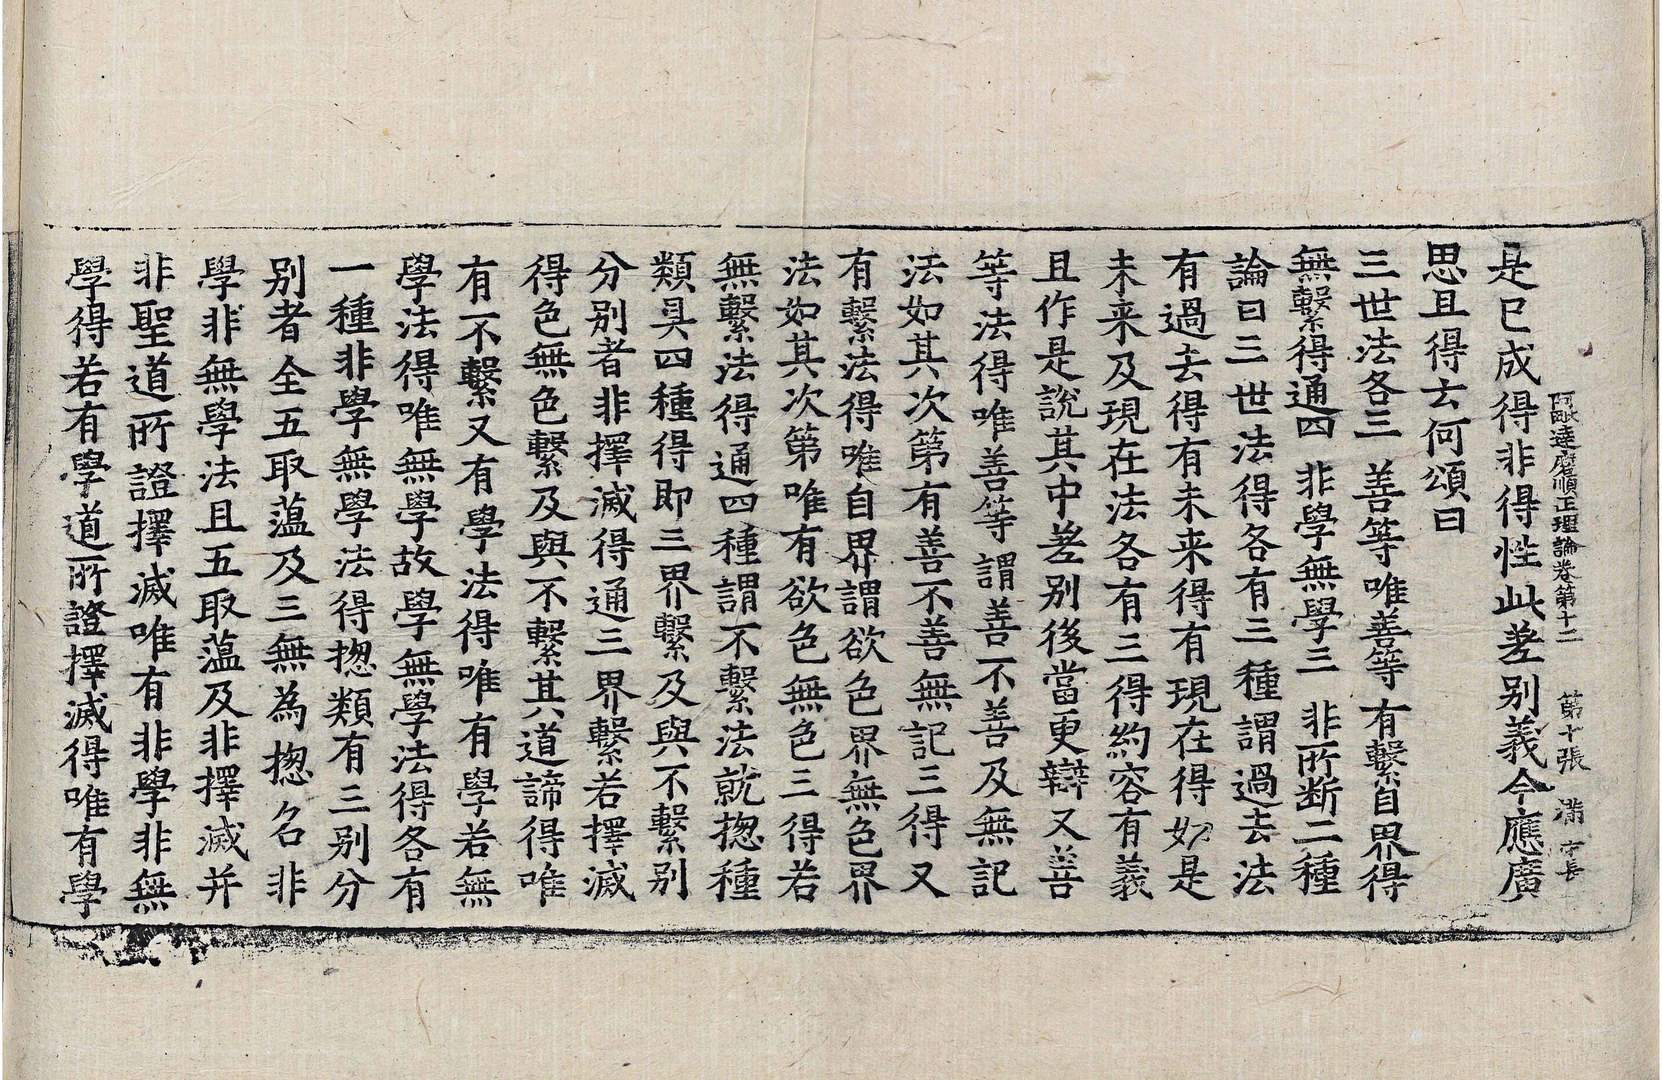 阿毗達磨順正理論卷第十二 第十張 滿 才長
是已成得非得性此差别義今應廣
思且得云何頌曰
三世法各三 善等唯善等 有繫自界得
無繫得通四 非學無學三 非所断二種
論曰三世法得各有三種謂過去法
有過去得有未来得有現在得如是
未来及現在法各有三得約容有義
且作是說其中差别後當更辯又善
等法得唯善等謂善不善及無記
法如其次第有善不善無記三得又
有繫法得唯自界謂欲色界無色界
法如其次第唯有欲色無色三得若
無繫法得通四種謂不繫法就揔種
類具四種得即三界繫及與不繫别
分别者非擇滅得通三界繫若擇滅
得色無色繫及與不繫其道諦得唯
有不繫又有學法得唯有學若無
學法得唯無學故學無學法得各有
一種非學無學法得揔類有三别分
别者全五取薀及三無為揔名非
學非無學法且五取薀及非擇滅并
非聖道所證擇滅唯有非學非無
學得若有學道所證擇滅得唯有學